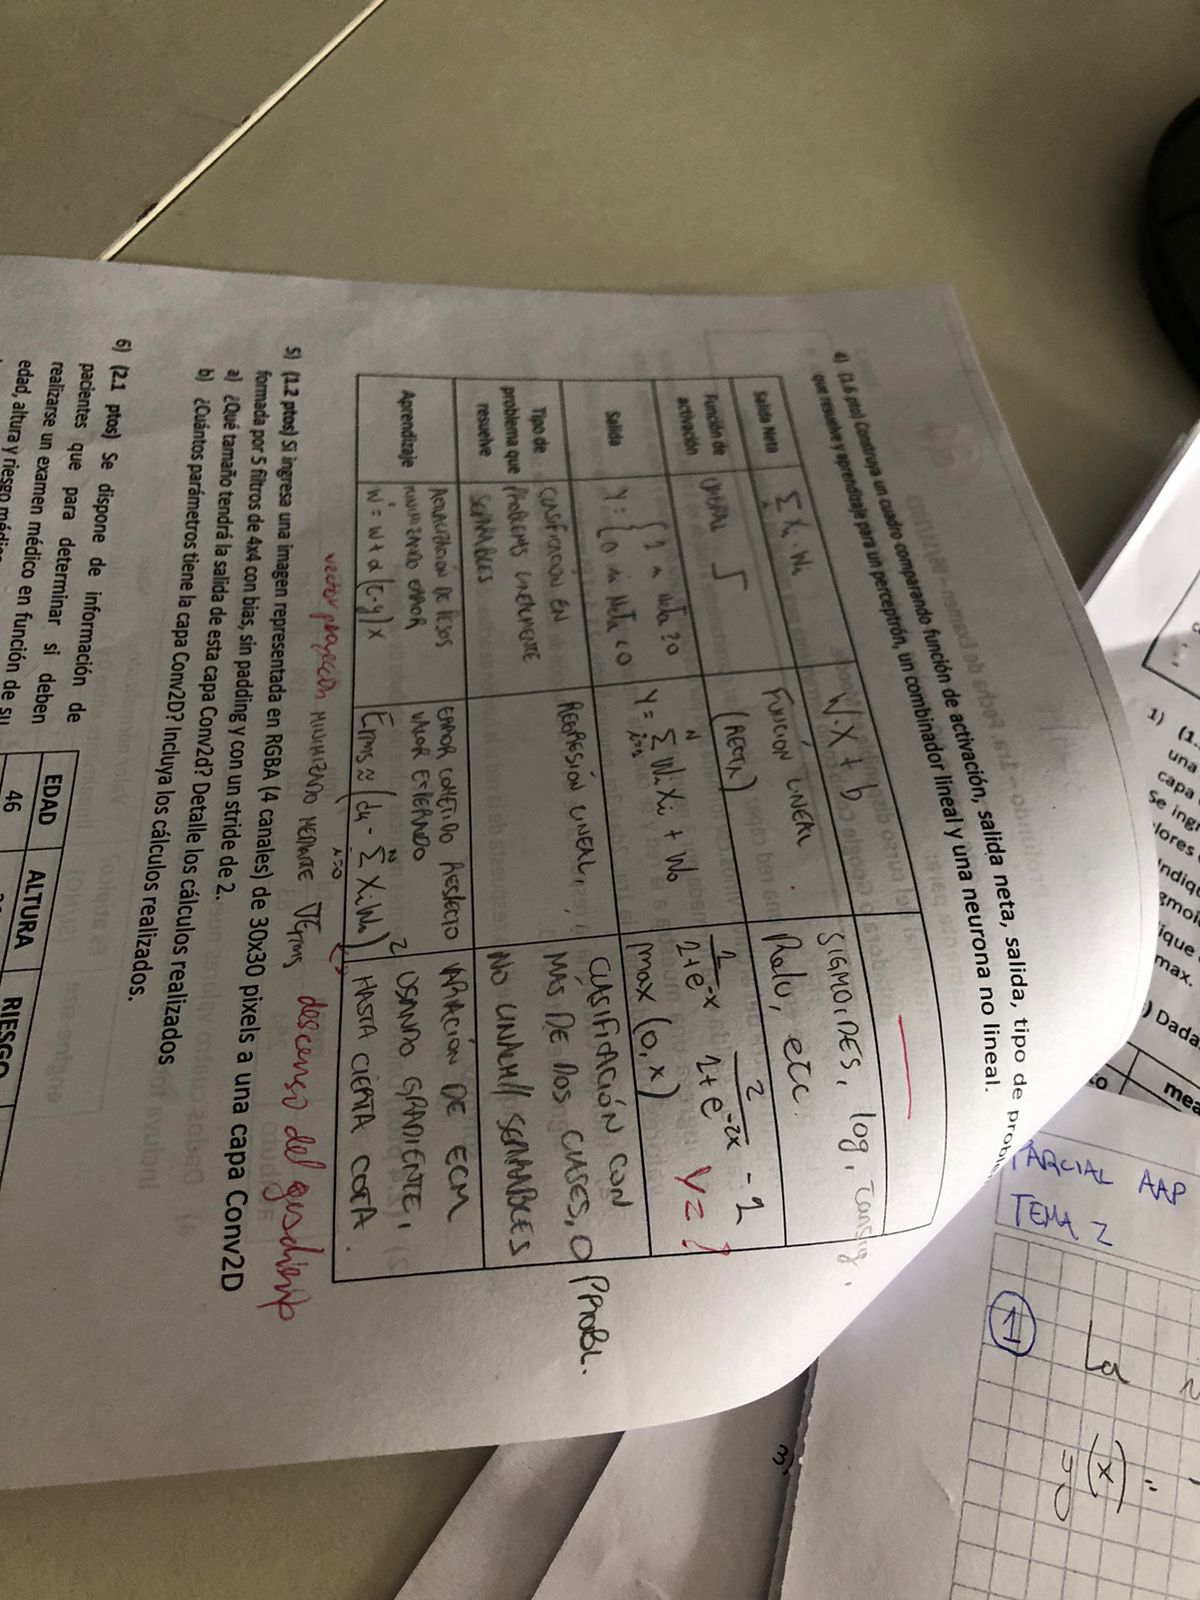 1) (1.
una
capa
Se ingr
lores
Indiq
gmoi
ique
max.
) Dada
mea
PARCIAL AAP
TEMA 2
1
La
y(x) =
3)
4) (1.6 pto) Construya un cuadro comparando función de activación, salida neta, salida, tipo de proble
que resuelve y aprendizaje para un perceptrón, un combinador lineal y una neurona no lineal.
Salida Neta
Σ Xi · Wi
W·X + b
Función de activación
UMBRAL
FUNCIÓN LINEAL
(RECTA)
SIGMOIDES, log, Tansig,
Relu, etc.
Salida
Y = { 1 si Neta ≥ 0
0 si Neta < 0
Y = Σ Wi Xi + W0
N
i=1
1/(1+e^-x) 2/(1+e^-2x) - 1
max (0, x)
Y = ?
Tipo de problema que resuelve
CLASIFICACIÓN EN
PROBLEMS LINEALMENTE
SEPARABLES
REGRESIÓN LINEAL,
CLASIFICACIÓN CON
MÁS DE DOS CLASES, O PROBL.
NO LINALM// SEPARABLES
Aprendizaje
ACTUALIZACIÓN DE PESOS
MINIMIZANDO ERROR
w' = w + α (t - y) x
ERROR COMETIDO RESPECTO
VALOR ESPERADO
Erms ≈ (dk - Σ Xi Wi)²
N
i=0
VARIACIÓN DE ECM
USANDO GRADIENTE,
HASTA CIERTA COTA.
vector proyección MINIMIZADO MEDIANTE ∇Erms descenso del gradiente
5) (1.2 ptos) Si ingresa una imagen representada en RGBA (4 canales) de 30x30 pixels a una capa Conv2D
formada por 5 filtros de 4x4 con bias, sin padding y con un stride de 2.
a) ¿Qué tamaño tendrá la salida de esta capa Conv2d? Detalle los cálculos realizados
b) ¿Cuántos parámetros tiene la capa Conv2D? Incluya los cálculos realizados.
6) (2.1 ptos) Se dispone de información de
pacientes que para determinar si deben
realizarse un examen médico en función de su
edad, altura y riesgo médic
EDAD ALTURA RIESGO
46